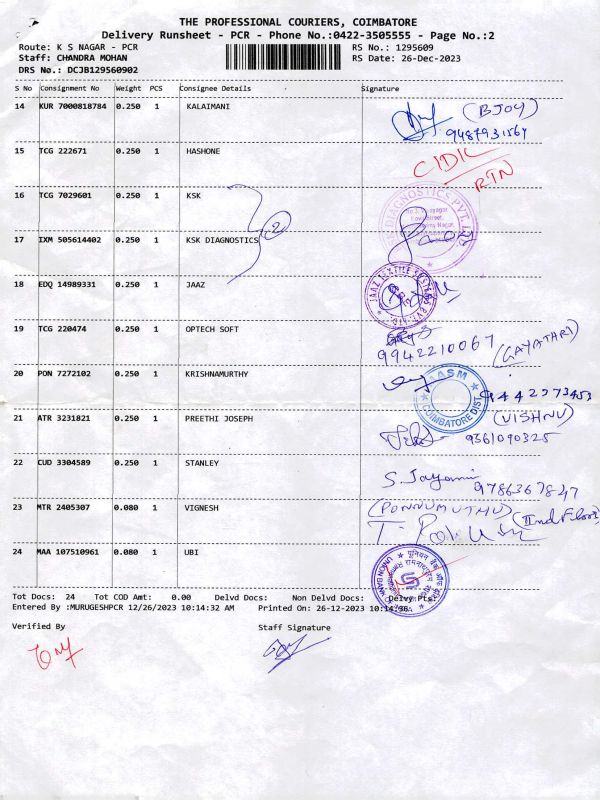 THE PROFESSIONAL COURIERS, COIMBATORE
Delivery Runsheet - PCR - Phone No.:0422-3505555 - Page No.:2
Route: K S NAGAR - PCR RS No.: 1295609
Staff: CHANDRA MOHAN RS Date: 26-Dec-2023
DRS No.: DCJB129560902
S No Consignment No Weight PCS Consignee Details Signature
14 KUR 7000818784 0.250 1 KALAIMANI (BJOY)
9487931564
15 TCG 222671 0.250 1 HASHONE CIDIC
RTN
16 TCG 7029601 0.250 1 KSK
DIAGNOSTICS PVT. LTD
17 IXM 505614402 0.250 1 KSK DIAGNOSTICS 2
18 EDQ 14989331 0.250 1 JAAZ
19 TCG 220474 0.250 1 OPTECH SOFT
9942210067 (GAYATHRI)
20 PON 7272102 0.250 1 KRISHNAMURTHY
ASM
COIMBATORE DIST
9442273453
21 ATR 3231821 0.250 1 PREETHI JOSEPH (VISHNU)
9361090325
22 CUD 3304589 0.250 1 STANLEY S. Jayanni
9786367847
23 MTR 2405307 0.080 1 VIGNESH (PONNUMUTHU) (IInd Floor)
24 MAA 107510961 0.080 1 UBI
Tot Docs: 24 Tot COD Amt: 0.00 Delvd Docs: Non Delvd Docs: Delvy Pts:
Entered By :MURUGESHPCR 12/26/2023 10:14:32 AM Printed On: 26-12-2023 10:14:36
Verified By Staff Signature